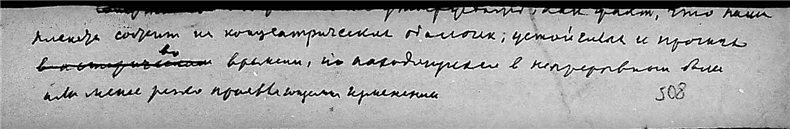 факт, что наша
планета состоит из концентрических оболочек; устойчивых и прочных
во времени, но находящихся в непрерывном более
или менее резко проявляющемся изменении 508